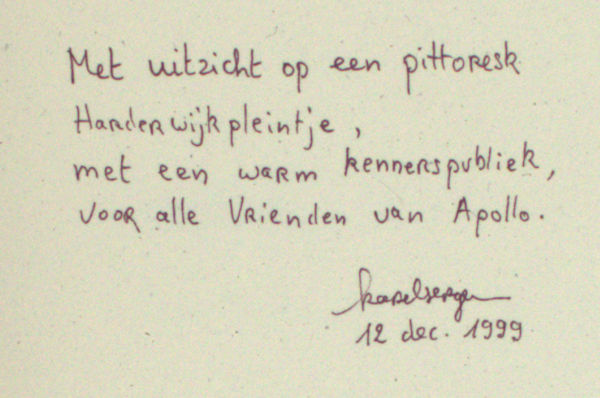 Met uitzicht op een pittoresk
Harderwijkpleintje,
met een warm kennerspubliek,
voor alle Vrienden van Apollo.
12 dec. 1999